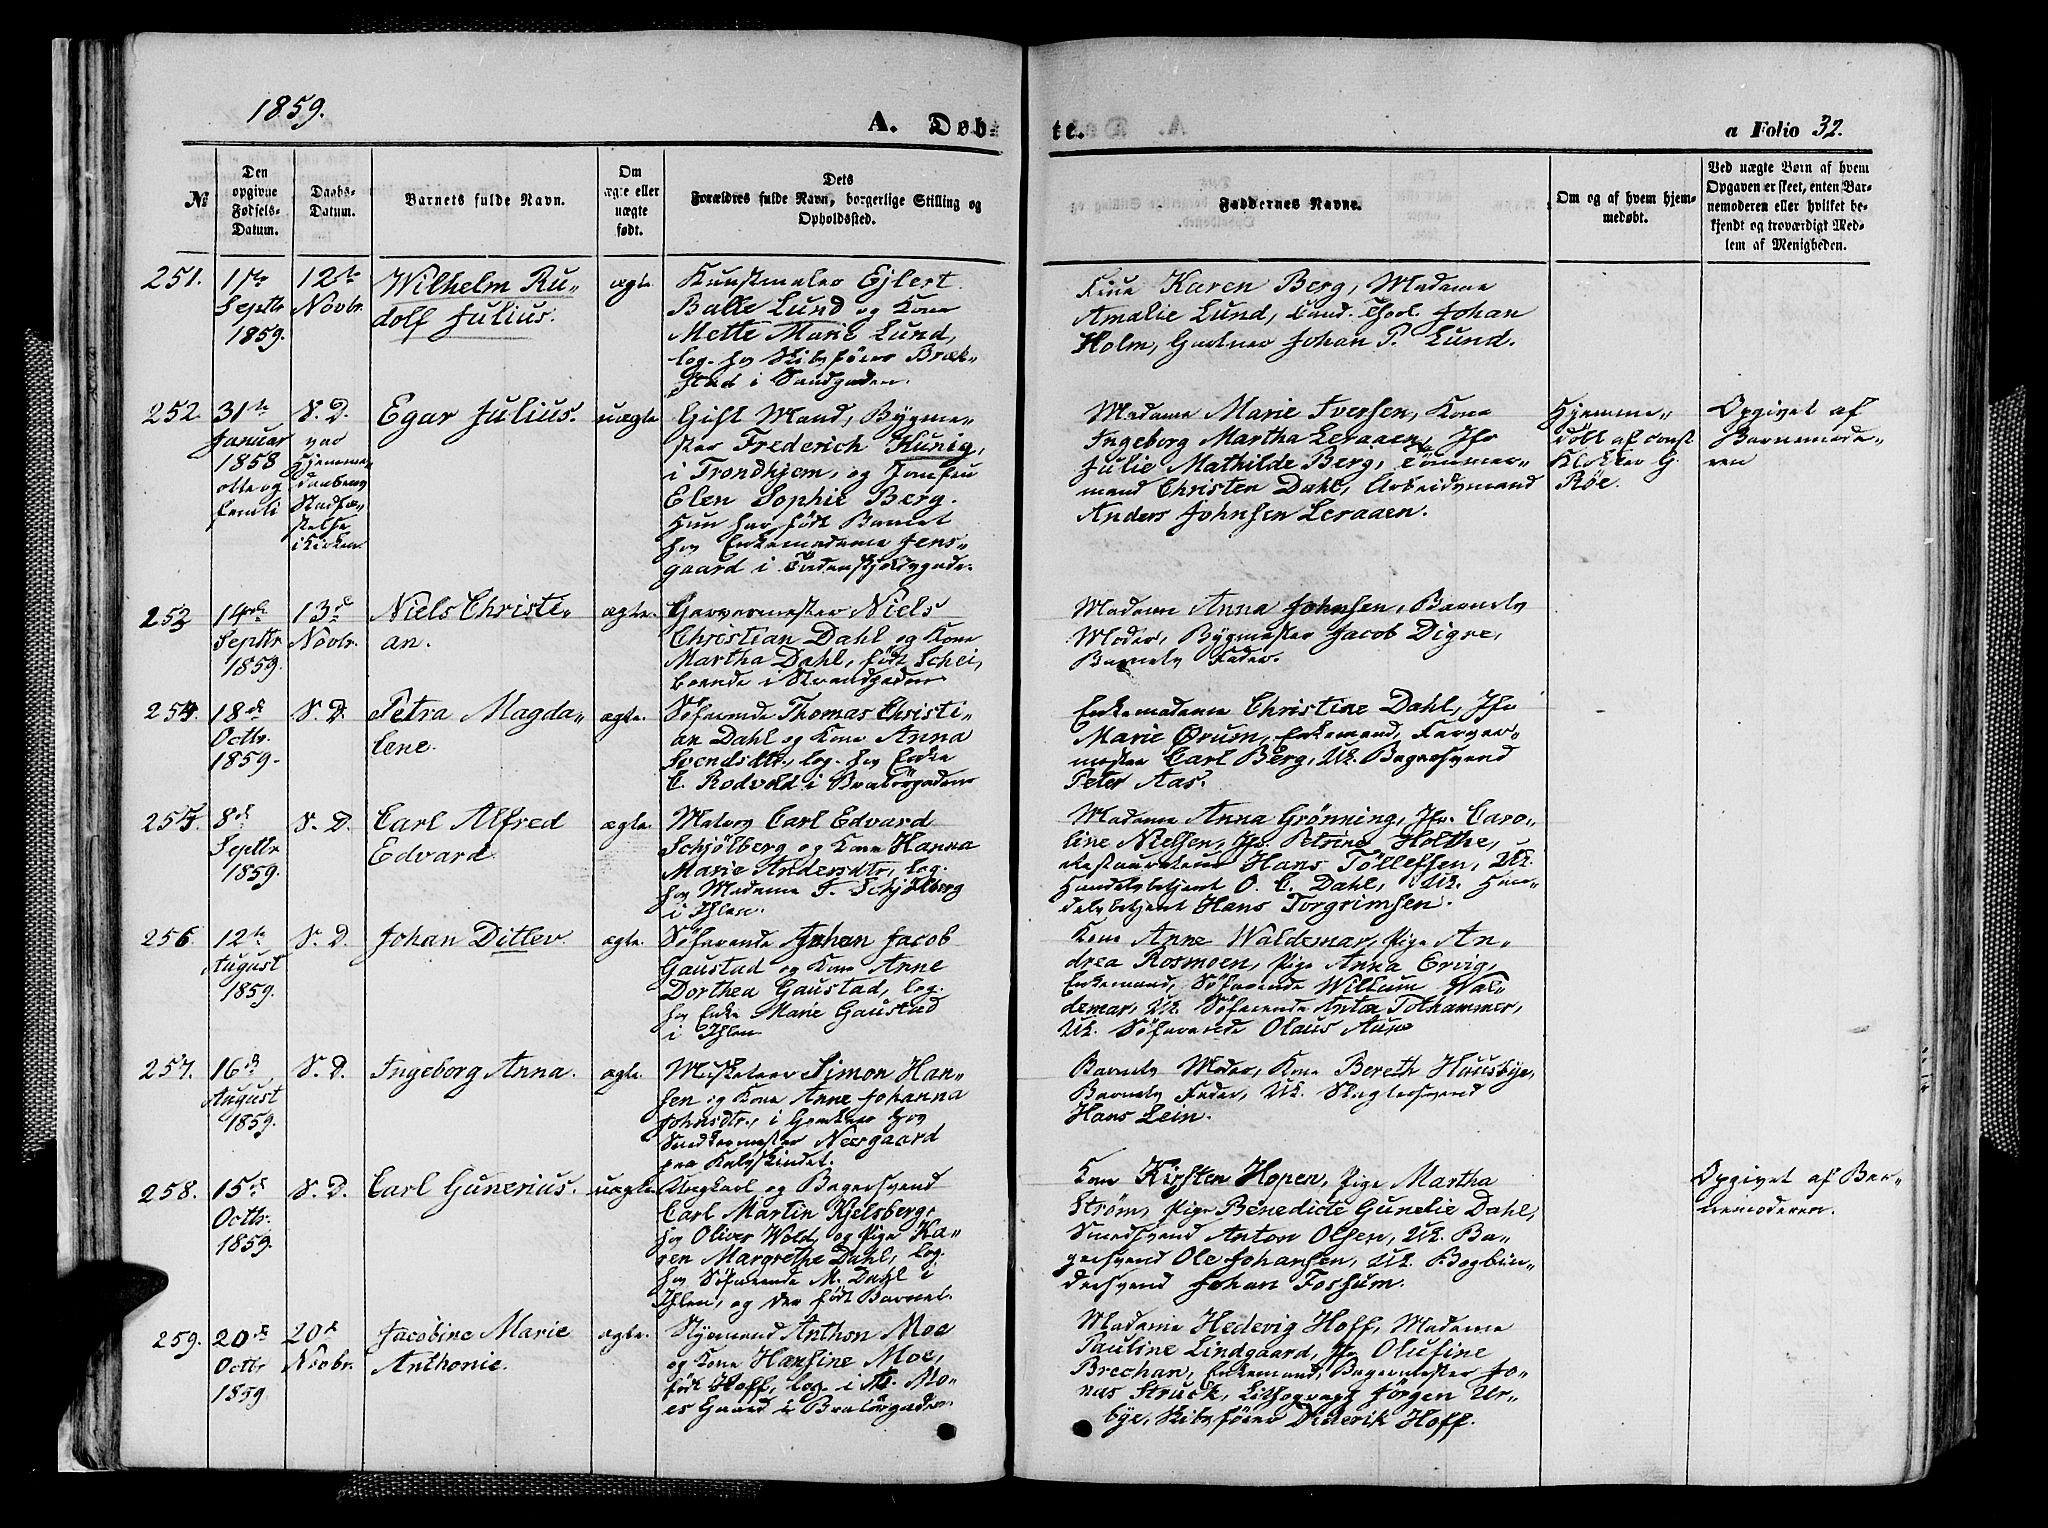 1859.
A. Døb-
te.
a Folio 32.
№
Den opgivne Fødsels-Datum.
Daabs-Datum.
Barnets fulde Navn.
Om ægte eller uægte født.
Dets Forældres fulde Navn, borgerlige Stilling og Opholdssted.
Faddernes Navne.
Om og af hvem hjemmedøbt.
Ved uægte Børn af hvem
Opgaven er skeet, enten Bar-
nemoderen eller hvilket be-
kjendt og troværdigt Med-
lem af Menigheden.
251.
1ste
Septbr
1859.
12te
Novbr.
Wilhelm Ru-
dolf Julius.
ægte
Kunstmaler Ejlert
Balle Lund og Kone
Mette Marie Lund,
log. hos Skibsfører Bræk-
stad i Sandgaden.
Frue Karen Berg, Madame
Amalie Lund, Cand. theol. Johan
Holm, Gartner Johan P. Lund.
252.
31te
Januar
1858
S. D.
var
Hjemme-
daabens
Stadfæ-
stelse
i Kirken
Egar Julius.
uægte
Gift Mand, Bygme-
ster Frederich Kunig,
i Trondhjem, og Jomfru
Elen Sophie Berg.
Hun har født Barnet
hos Enkemadame Jens-
gaard i Tordenskjoldsgade.
Madame Marie Iversen, Kone
Ingeborg Martha Leraaen, Jfr
Julie Mathilde Berg, Tømmer-
mand Christen Dahl, Arbeidsmand
Anders Johnsen Leraaen.
Hjemme-
døbt af const
Klokker G.
Röe.
Opgivet af
Barnemode-
ren
253
14de
Septbr
1859.
13de
Novbr.
Niels Christi-
an.
ægte.
Garvermester Niels
Christian Dahl og Kone
Martha Dahl, født Schei,
boende i Strandgaden
Madame Anna Johnsen, Barnets
Moder, Bygmester Jacob Digre,
Barnets Fader.
254.
18de
Octbr.
1859.
S. D.
Petra Magda-
lene.
ægte.
Søfarende Thomas Christi-
an Dahl og Kone Anna
Svendsdtr., log. hos Enke
C. Rodvold i Bratörgaden
Enkemadame Christine Dahl, Jfr
Marie Ørum, Enkemand, Farver-
mester Carl Berg, Uk. Bagersvend
Peter Aas.
255.
8de
Septbr
1859.
S. D.
Carl Alfred
Edvard
ægte.
Malers Carl Edvard
Schjølberg og Kone Hanna
Marie Andersdtr, log.
hos Madame T. Schjølberg
i Ihlen.
Madame Anna Grönning, Jfr. Caro-
line Nielsen, Jfr. Petrine Holthe,
Restaurateur Hans Töllefsen, Uk.
Handelsbetjent O. C. Dahl, Uk. Han-
delsbetjent Hans Torgrimsen.
256.
12te
August
1859.
S. D.
Johan Ditlev
ægte.
Søfarende Johan Jacob
Gaustad og Kone Anne
Dorthea Gaustad, log.
hos Enke Marie Gaustad
i Ihlen
Kone Anne Waldemar, Pige An-
drea Rosmoen, Pige Anna Ervig,
Enkemand, Söfarende Willum Wal-
demar, Uk. Söfarende Anton Tolhammer,
Uk Söfarende Olaus Aune
257.
16de
August
1859.
S. D.
Ingeborg Anna.
ægte.
Musketeer Simon Han-
sen og Kone Anne Johanna
Johnsdtr., i
Snedkermester Neergaard
paa Kalvskindet.
Barnets Moder, Kone Bereth Hausbye,
Barnets Fader, Uk. Slagtersvend
Hans Lein.
258.
15de
Octbr.
1859.
S. D.
Carl Gunerius.
uægte.
Ungkarl og Bagersvend
Carl Martin Kjelsberg,
hos Oliver Wold, og Pige Ka-
ren Margrethe Dahl, log.
hos Söfarende M. Dahl i
Ihlen, og der født Barnet.
Kone Kirsten Hopen, Pige Martha
Ström, Pige Benedicte Gunelie Dahl,
Smedsvend Anton Olsen, Uk. Ba-
gersvend Ole Johansen, Uk Bogbin-
dersvend Johan Fossum.
Opgivet af Bar-
nemoderen.
259.
20de
Octbr
1859.
20de
Novbr.
Jacobine Marie
Anthonie.
ægte.
Styrmand Anthon Moe
og Kone Hansine Moe,
født Hoff, log. i A. Mo-
es Gaard i Bratörgaden.
Madame Hedevig Hoff, Madame
Pauline Lindgaard, Jfr Olufine
Brechan, Enkemand, Bagermester Jo-
nas Struck, Lithograph Jörgen Ur-
bye, Skibsfører Diderik Hoff.